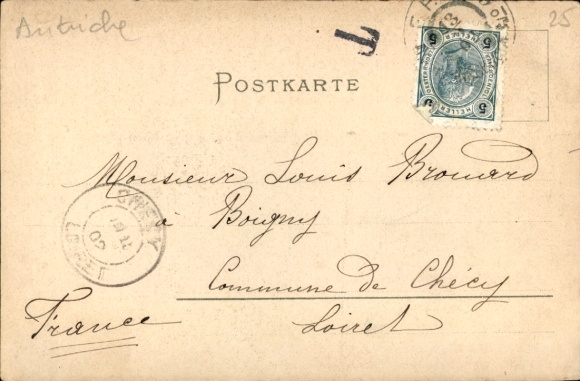 Autriche
25
T
POSTKARTE
5 5
HELLER
5 5
Monsieur Louis Brouard
à Boigny
Commune de Chécy
Loiret
France
02